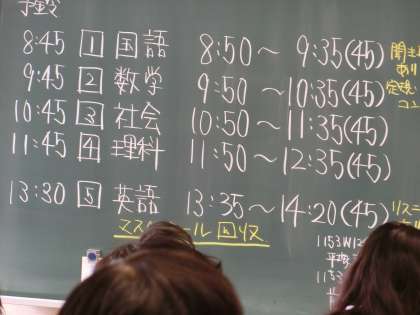 予鈴
8:45 1 国語 8:50〜 9:35(45)
9:45 2 数学 9:50〜10:35(45)
10:45 3 社会 10:50〜11:35(45)
11:45 4 理科 11:50〜12:35(45)
13:30 5 英語 13:35〜14:20(45)
あり
リス
マス ール回収